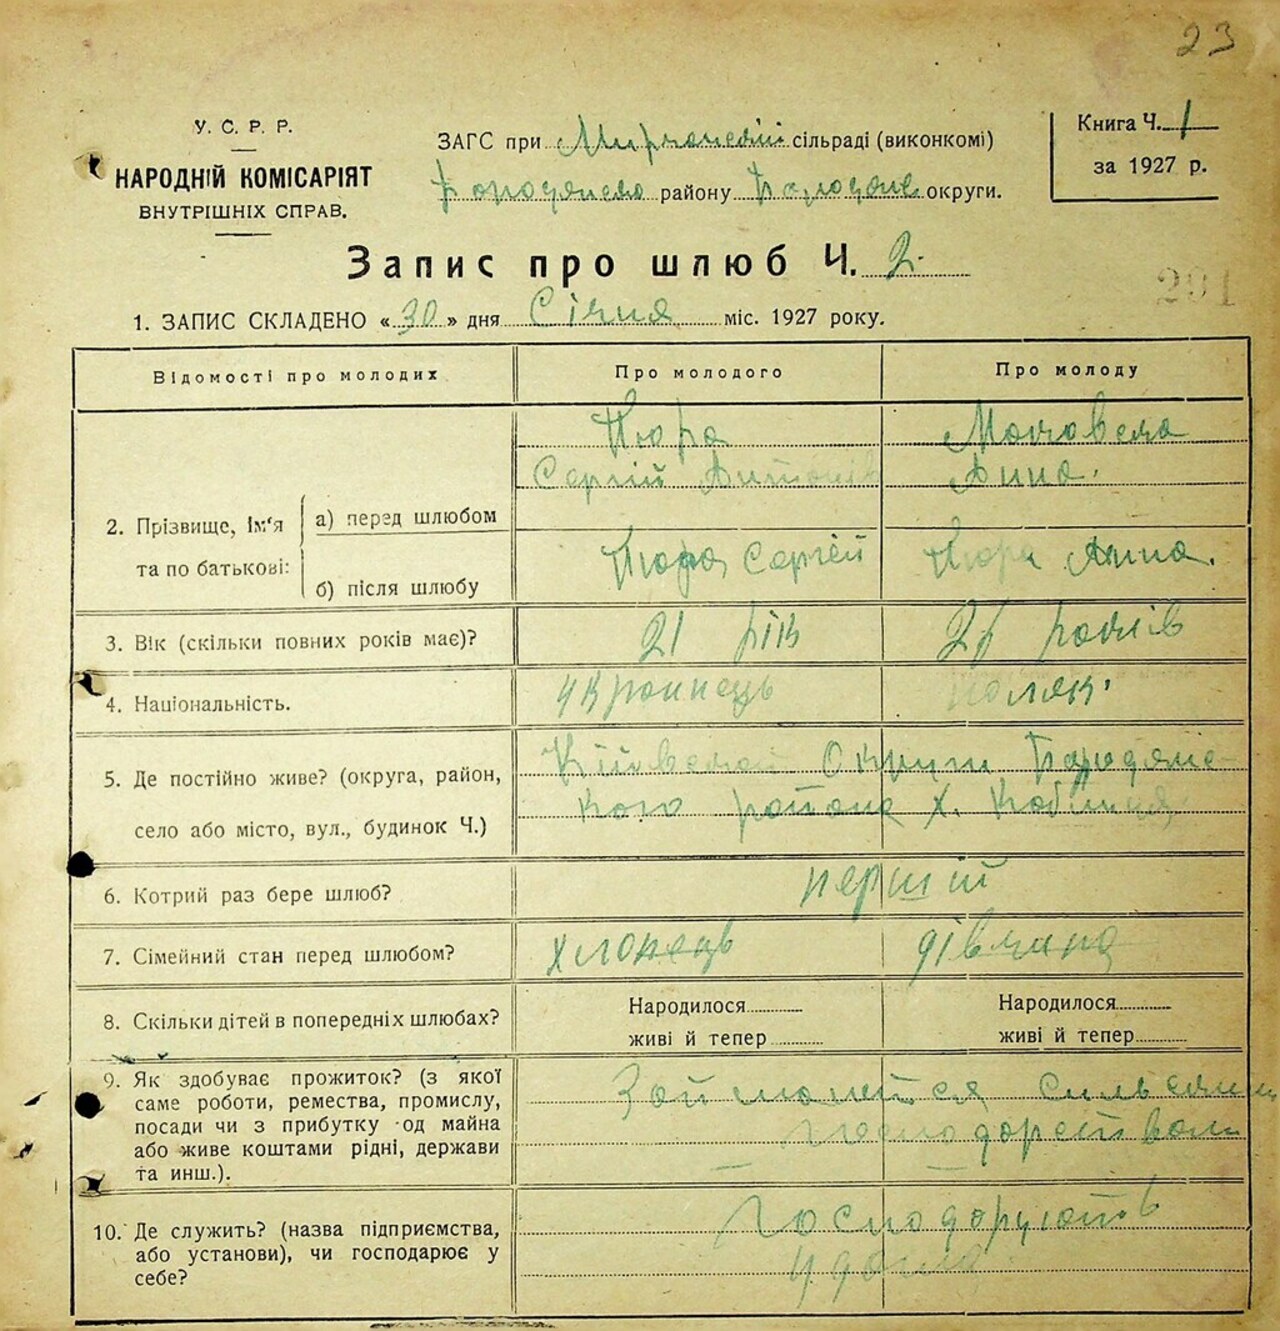 23
У. С. Р. Р.
НАРОДНІЙ КОМІСАРІЯТ
ВНУТРІШНІХ СПРАВ.
ЗАГС при сільраді (виконкомі)
району округи.
Книга Ч. 1
за 1927 р.
Запис про шлюб Ч. 2.
291
1. ЗАПИС СКЛАДЕНО « 30 » дня Січня міс. 1927 року.
Відомості про молодих
Про молодого
Про молоду
2. Прізвище, ім'я
та по батькові:
а) перед шлюбом
б) після шлюбу
Пюра
Сергій Антонів
Анна.
Пюра Сергій
Пюра Анна.
3. Вік (скільки повних років має)?
21 рік
років
4. Національність.
Украинець
поляк.
5. Де постійно живе? (округа, район,
село або місто, вул., будинок Ч.)
Київської Округи Бородянс-
кого района х.
6. Котрий раз бере шлюб?
первій
7. Сімейний стан перед шлюбом?
хлопець
дівчина
8. Скільки дітей в попередніх шлюбах?
Народилося
живі й тепер
Народилося
живі й тепер
9. Як здобуває прожиток? (з якої
саме роботи, ремества, промислу,
посади чи з прибутку од майна
або живе коштами рідні, держави
та инш.).
Займається
господарством
10. Де служить? (назва підприємства,
або установи), чи господарює у
себе?
Господарують
у дома